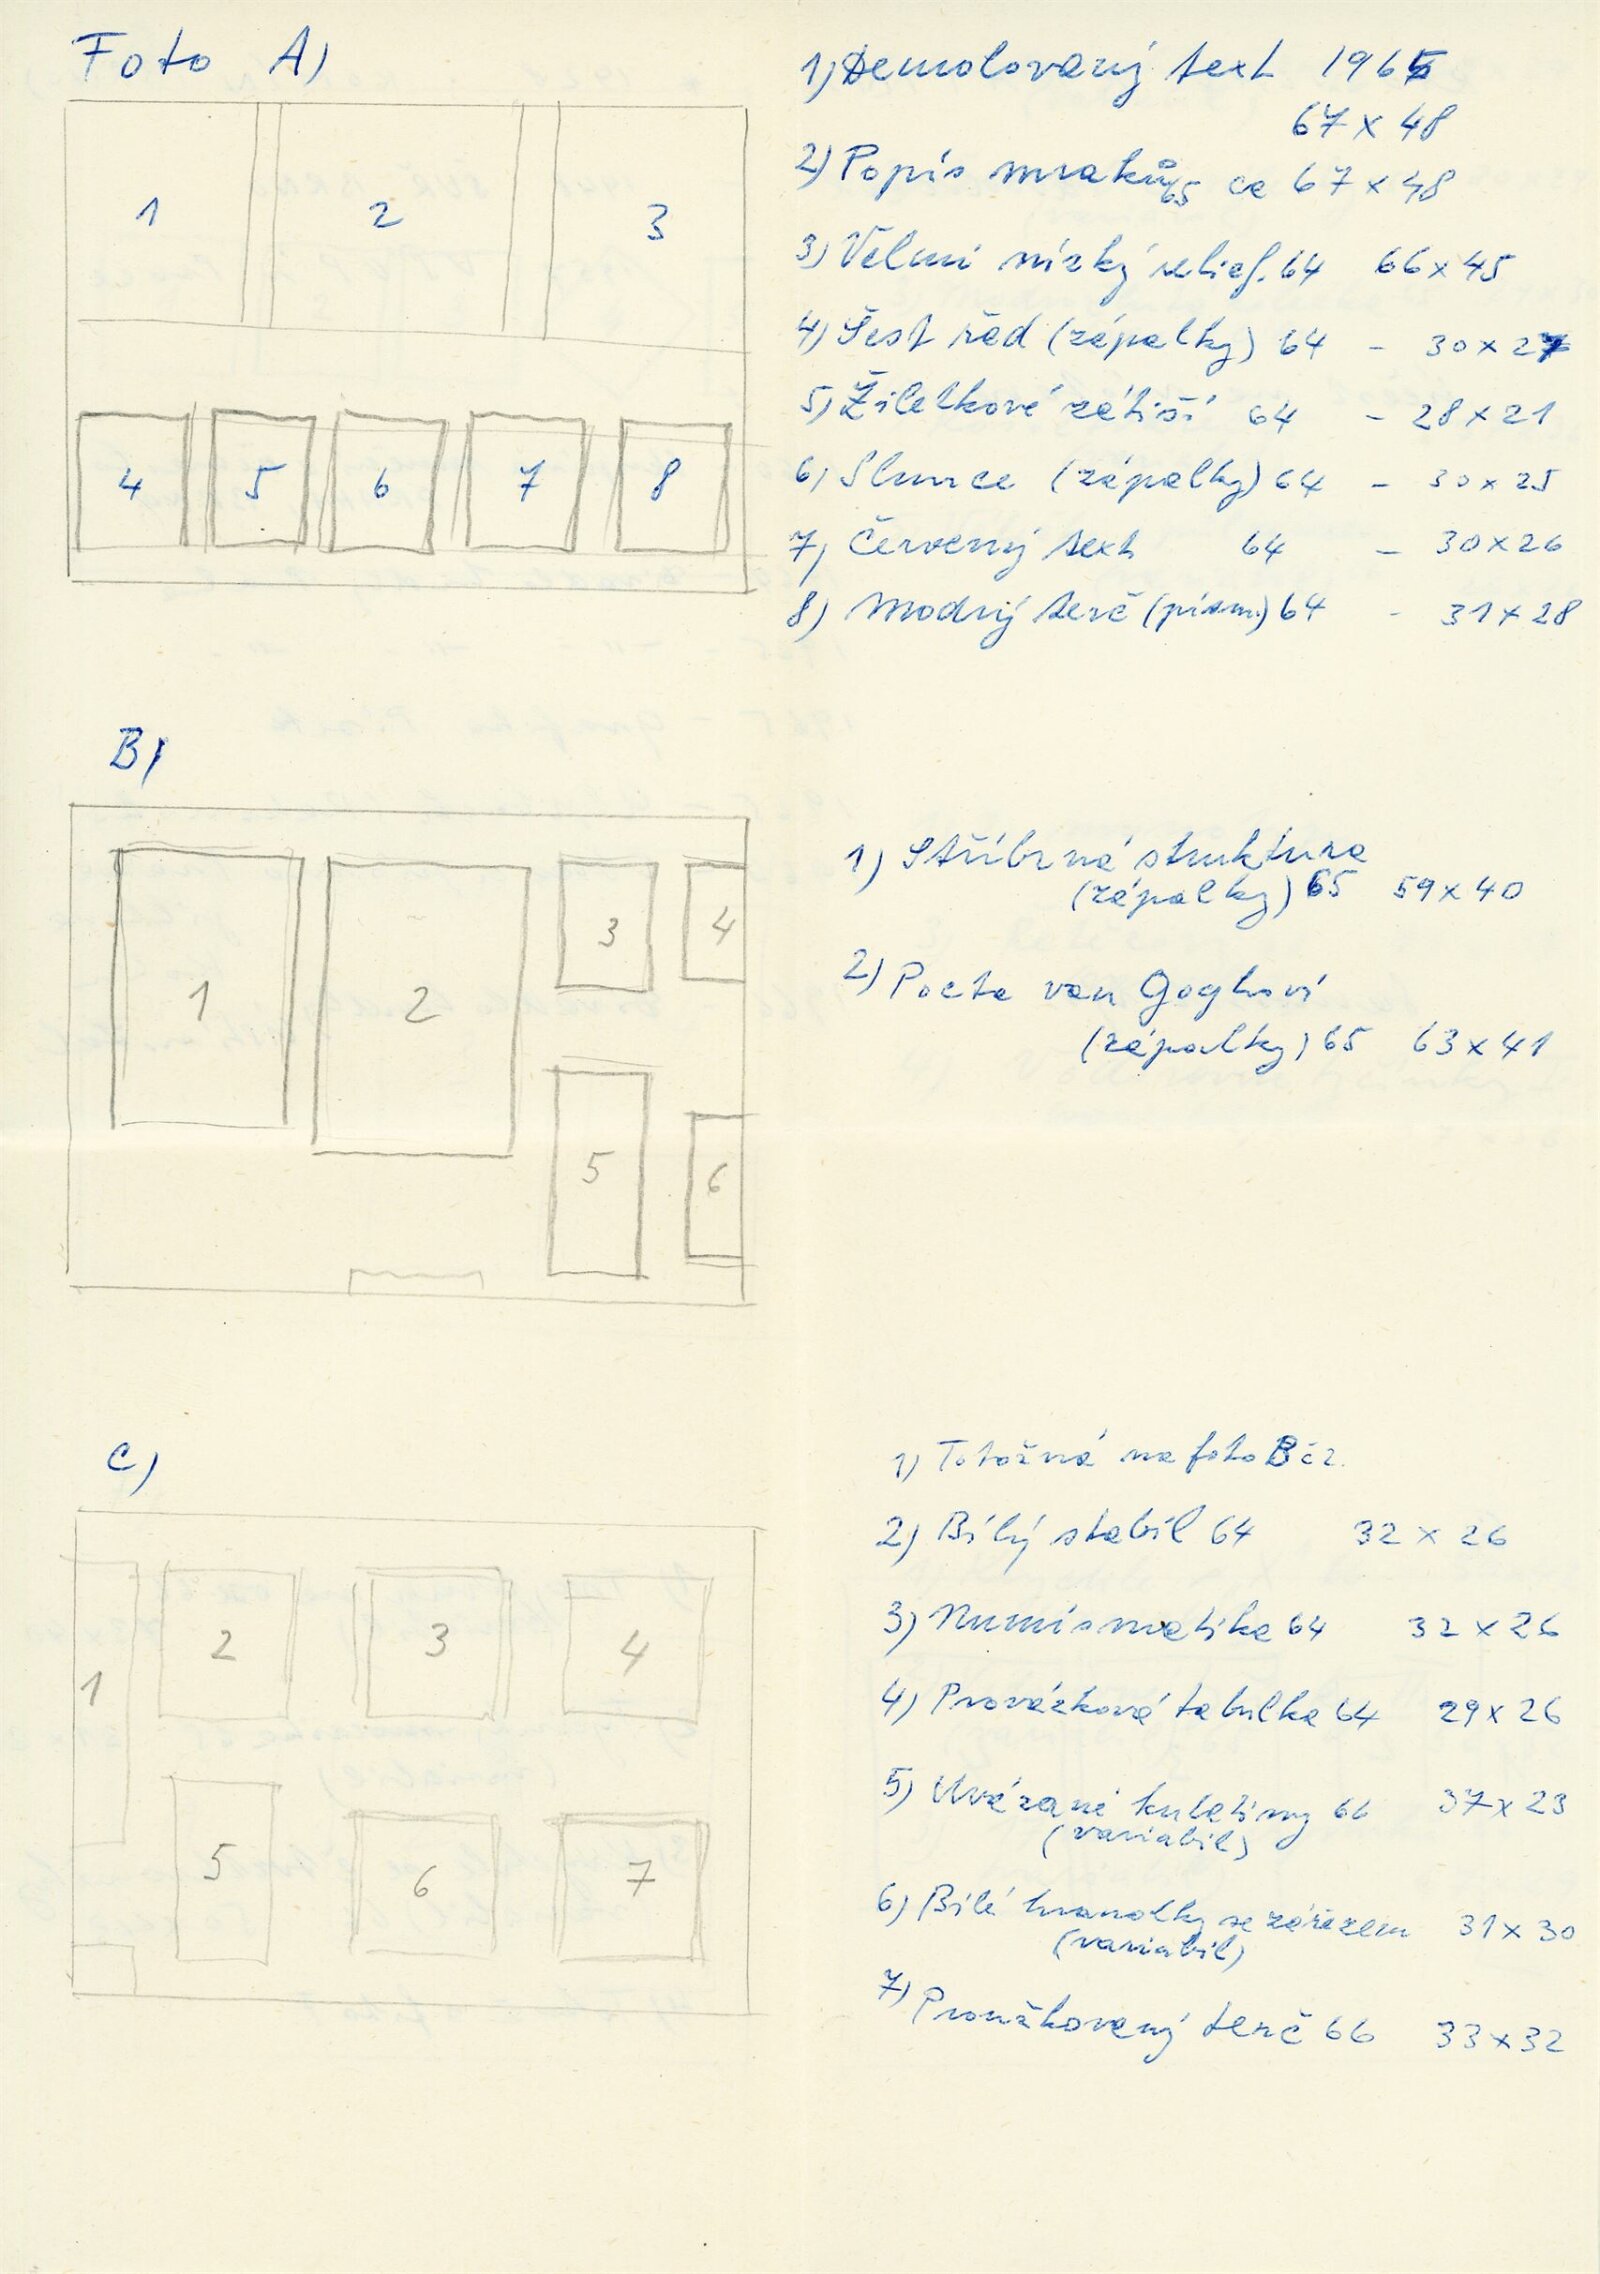 Foto A)
1 2 3
4 5 6 7 8
1) Demolovaný text 1965
67 x 48
2) Popis mraků 65 ca 67 x 48
3) Velmi nízký relief. 64 66 x 45
4) Šest řad (zápalky) 64 - 30 x 27
5) Žiletkové zátiší 64 - 28 x 21
6) Slunce (zápalky) 64 - 30 x 25
7) Červený text 64 - 30 x 26
8) Modrý terč (písm.) 64 - 31 x 28
B)
1 2 3 4
5 6
1) Stříbrná struktura
(zápalky) 65 59 x 40
2) Pocta van Goghovi
(zápalky) 65 63 x 41
C)
1 2 3 4
5 6 7
1) Totožná na foto B č 2.
2) Bílý stabil 64 32 x 26
3) Numismatika 64 32 x 26
4) Provázková tabulka 64 29 x 26
5) Uvázané kulatiny 66 37 x 23
(variabil)
6) Bílé hranolky se zářezem 31 x 30
(variabil)
7) Proužkovaný terč 66 33 x 32